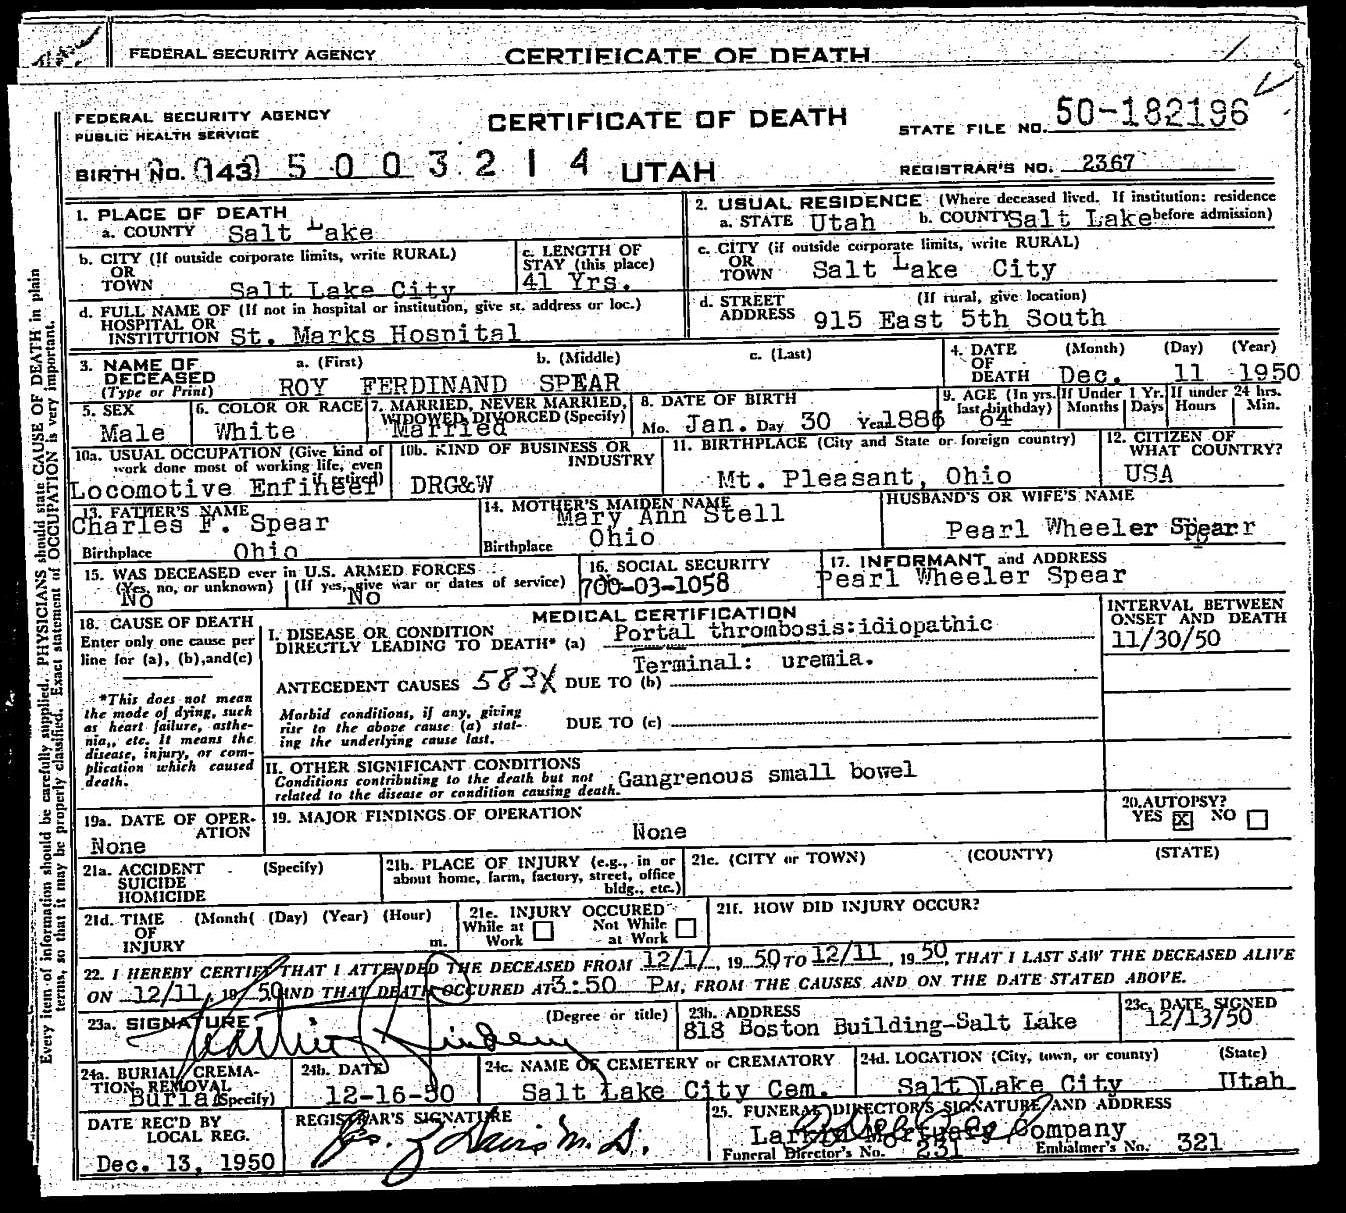 FEDERAL SECURITY AGENCY CERTIFICATE OF DEATH
FEDERAL SECURITY AGENCY
PUBLIC HEALTH SERVICE
CERTIFICATE OF DEATH
STATE FILE NO. 50-182196
BIRTH NO. 143 5 0 0 3 2 1 4 UTAH
REGISTRAR'S NO. 2367
Every item of information should be carefully supplied. PHYSICIANS should state CAUSE OF DEATH in plain
terms, so that it may be properly classified. Exact statement of OCCUPATION is very important.
1. PLACE OF DEATH
a. COUNTY Salt Lake
2. USUAL RESIDENCE (Where deceased lived. If institution: residence
a. STATE Utah b. COUNTY Salt Lake before admission)
b. CITY (If outside corporate limits, write RURAL)
OR
TOWN Salt Lake City
c. LENGTH OF
STAY (this place)
41 Yrs.
c. CITY (if outside corporate limits, write RURAL)
OR
TOWN Salt Lake City
d. FULL NAME OF (If not in hospital or institution, give st. address or loc.)
HOSPITAL OR
INSTITUTION St. Marks Hospital
d. STREET (If rural, give location)
ADDRESS 915 East 5th South
3. NAME OF a. (First) b. (Middle) c. (Last)
DECEASED
(Type or Print) ROY FERDINAND SPEAR
4. DATE (Month) (Day) (Year)
OF
DEATH Dec. 11 1950
5. SEX
Male
6. COLOR OR RACE
White
7. MARRIED, NEVER MARRIED,
WIDOWED, DIVORCED (Specify)
Married
8. DATE OF BIRTH
Mo. Jan. Day 30 Year 1886
9. AGE (In yrs.
last birthday)
64
If Under 1 Yr.
Months Days
If under 24 hrs.
Hours Min.
10a. USUAL OCCUPATION (Give kind of
work done most of working life, even
if retired)
Locomotive Enfineer
10b. KIND OF BUSINESS OR
INDUSTRY
DRG&W
11. BIRTHPLACE (City and State or foreign country)
Mt. Pleasant, Ohio
12. CITIZEN OF
WHAT COUNTRY?
USA
13. FATHER'S NAME
Charles F. Spear
Birthplace Ohio
14. MOTHER'S MAIDEN NAME
Mary Ann Stell
Birthplace Ohio
HUSBAND'S OR WIFE'S NAME
Pearl Wheeler Spearr
15. WAS DECEASED ever in U.S. ARMED FORCES
(Yes, no, or unknown) (If yes, give war or dates of service)
No No
16. SOCIAL SECURITY
700-03-1058
17. INFORMANT and ADDRESS
Pearl Wheeler Spear
18. CAUSE OF DEATH
Enter only one cause per
line for (a), (b), and (c)
*This does not mean
the mode of dying, such
as heart failure, asthe-
nia,, etc. It means the
disease, injury, or com-
plication which caused
death.
MEDICAL CERTIFICATION
I. DISEASE OR CONDITION
DIRECTLY LEADING TO DEATH* (a) Portal thrombosis:idiopathic
Terminal: uremia.
ANTECEDENT CAUSES 583X DUE TO (b)
Morbid conditions, if any, giving
rise to the above cause (a) stat-
ing the underlying cause last.
DUE TO (c)
II. OTHER SIGNIFICANT CONDITIONS
Conditions contributing to the death but not
related to the disease or condition causing death.
Gangrenous small bowel
INTERVAL BETWEEN
ONSET AND DEATH
11/30/50
19a. DATE OF OPER-
ATION
None
19. MAJOR FINDINGS OF OPERATION
None
20. AUTOPSY?
YES X NO
21a. ACCIDENT (Specify)
SUICIDE
HOMICIDE
21b. PLACE OF INJURY (e.g., in or
about home, farm, factory, street, office
bldg., etc.)
21c. (CITY or TOWN) (COUNTY) (STATE)
21d. TIME (Month( (Day) (Year) (Hour)
OF
INJURY m.
21e. INJURY OCCURED
While at Work Not While at Work
21f. HOW DID INJURY OCCUR?
22. I HEREBY CERTIFY THAT I ATTENDED THE DECEASED FROM 12/1/, 1950 TO 12/11, 1950, THAT I LAST SAW THE DECEASED ALIVE
ON 12/11, 1950 AND THAT DEATH OCCURED AT 3:50 PM, FROM THE CAUSES AND ON THE DATE STATED ABOVE.
23a. SIGNATURE (Degree or title)
23b. ADDRESS
818 Boston Building-Salt Lake
23c. DATE SIGNED
12/13/50
24a. BURIAL, CREMA-
TION, REMOVAL
(Specify)
Burial
24b. DATE
12-16-50
24c. NAME OF CEMETERY OR CREMATORY
Salt Lake City Cem.
24d. LOCATION (City, town, or county) (State)
Salt Lake City Utah
DATE REC'D BY
LOCAL REG.
Dec. 13, 1950
REGISTRAR'S SIGNATURE
25. FUNERAL DIRECTOR'S SIGNATURE AND ADDRESS
Larkin Mortuary Company
Funeral Director's No. 231 Embalmer's No. 321